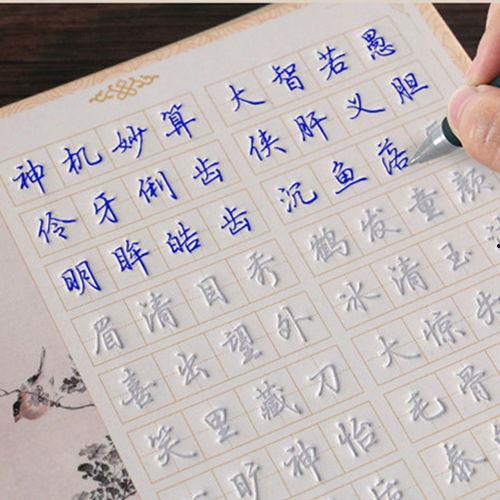 神机妙算 大智若愚
伶牙俐齿 侠肝义胆
明眸皓齿 沉鱼落
眉清目秀 鹤发童颜
喜出望外 冰清玉
笑里藏刀 大惊失
旷神怡 毛骨
泰